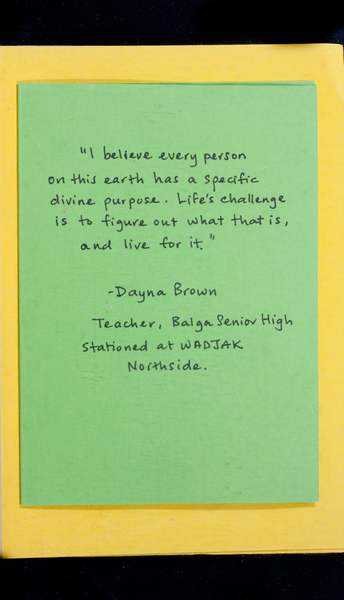 "I believe every person
on this earth has a specific
divine purpose. Life's challenge
is to figure out what that is,
and live for it."
-Dayna Brown
Teacher, Balga Senior High
Stationed at WADJAK
Northside.